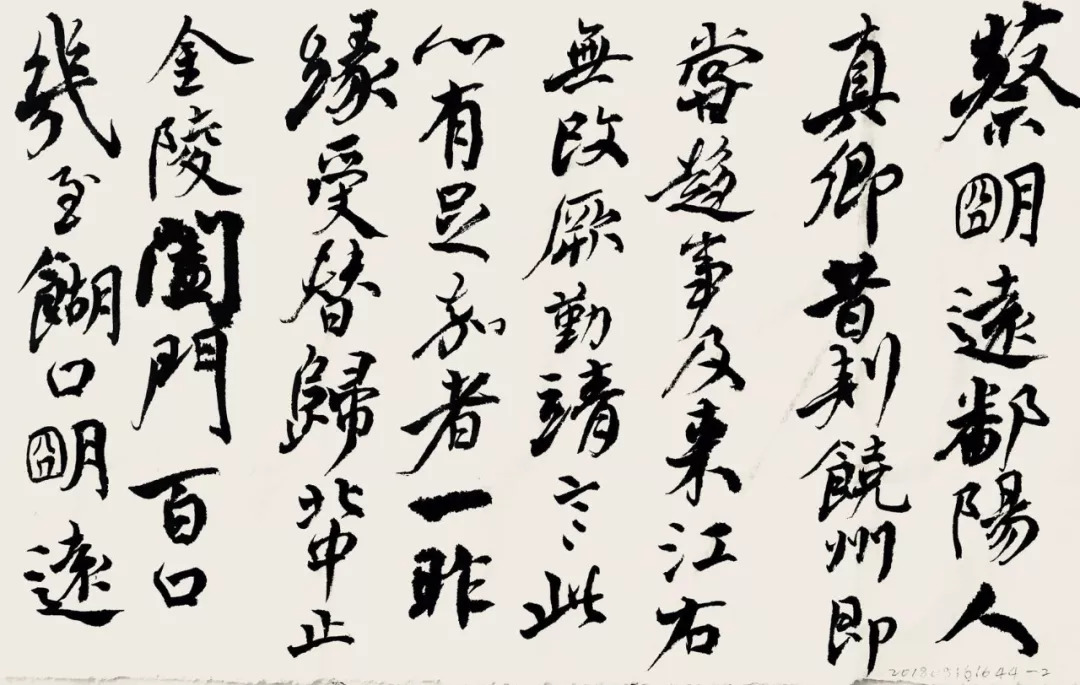 蔡朙遠鄱陽人
真卿昔刾饒州即
嘗趍事及来江右
無改厥勤靖言此
心有足嘉者一昨
緣受替歸北中止
金陵闔門百口
幾至餬口朙遠
201809161644-2